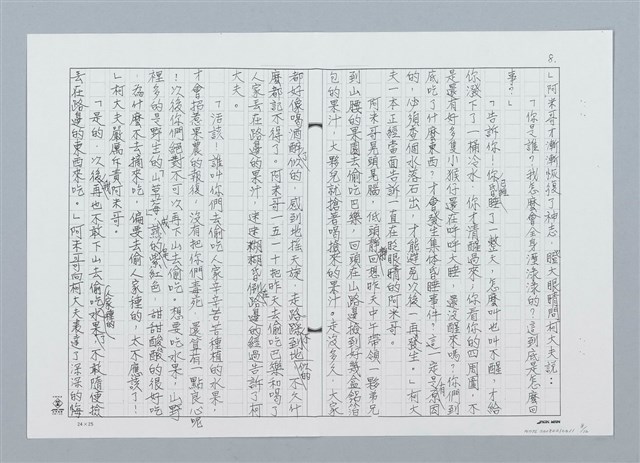 8.
」阿米哥才漸漸恢復了神志，瞪大眼睛問柯大夫說：
「你是誰？我怎麼會全身溼漉漉的？這到底是怎麼回
事？」
「告訴你！你已經昏睡了一整天，怎麼叫也叫不醒，才給
你潑下了一桶冷水，你才清醒過來；你看你的四周圍，不
是還有好多隻小猴仔還在呼呼大睡，還沒醒來嗎？你們到
底吃了什麼東西？才會發生集體昏睡事件？這一定是有原因
的，必須查個水落石出，才能避免次後一再發生。」柯大
夫一本正經當面告訴一直在眨眼睛的阿米哥。
阿米哥晃頭晃腦，低頭靜靜回想昨天中午帶領一夥弟兄
到山腰的果園去偷吃芭樂，回頭在山路邊撿到好幾盒鋁箔
包的果汁，大夥兒就搶著喝撿來的果汁。走沒多久，大家
都好像喝酒醉似的，感到地搖天旋，走路跌到地
麼都記不得了。阿米哥一五一十把昨天去偷吃芭樂和喝了
人家丟在路邊的果汁，迷迷糊糊昏倒路邊的經過告訴了柯
大夫。
「活該！誰叫你們去偷吃人家辛辛苦苦種植的水果，
才會招惹果農的報復，沒有把你們毒死，還算有一點良心呢
！次後你們絕對不可次再下山去偷吃。想要吃水果，山野
裡多的是野生的「山草莓」，成熟的果紫紅色，甜甜酸酸的很好吃
，為什麼不去摘來吃，偏要去偷人家種的，太不應該了！
」柯大夫嚴厲斥責阿米哥。
「是的，次後我再也不敢下山去偷吃人家種的水果了，不敢隨便撿
丟在路邊的東西來吃。」阿米哥向柯大夫表達了深深的悔
24×25